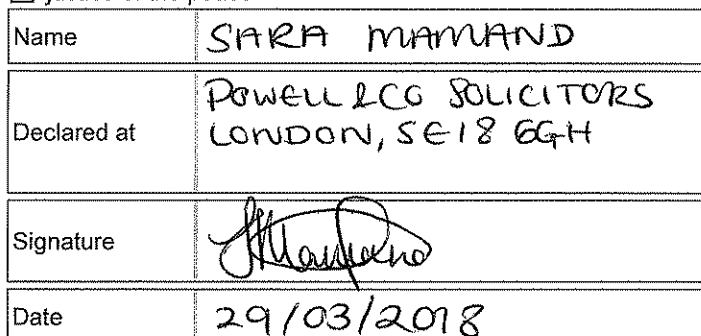 Name SARA MAMAND
Declared at POWELL & CO SOLICITORS
LONDON, SE18 6GH
Signature
Date 29/03/2018